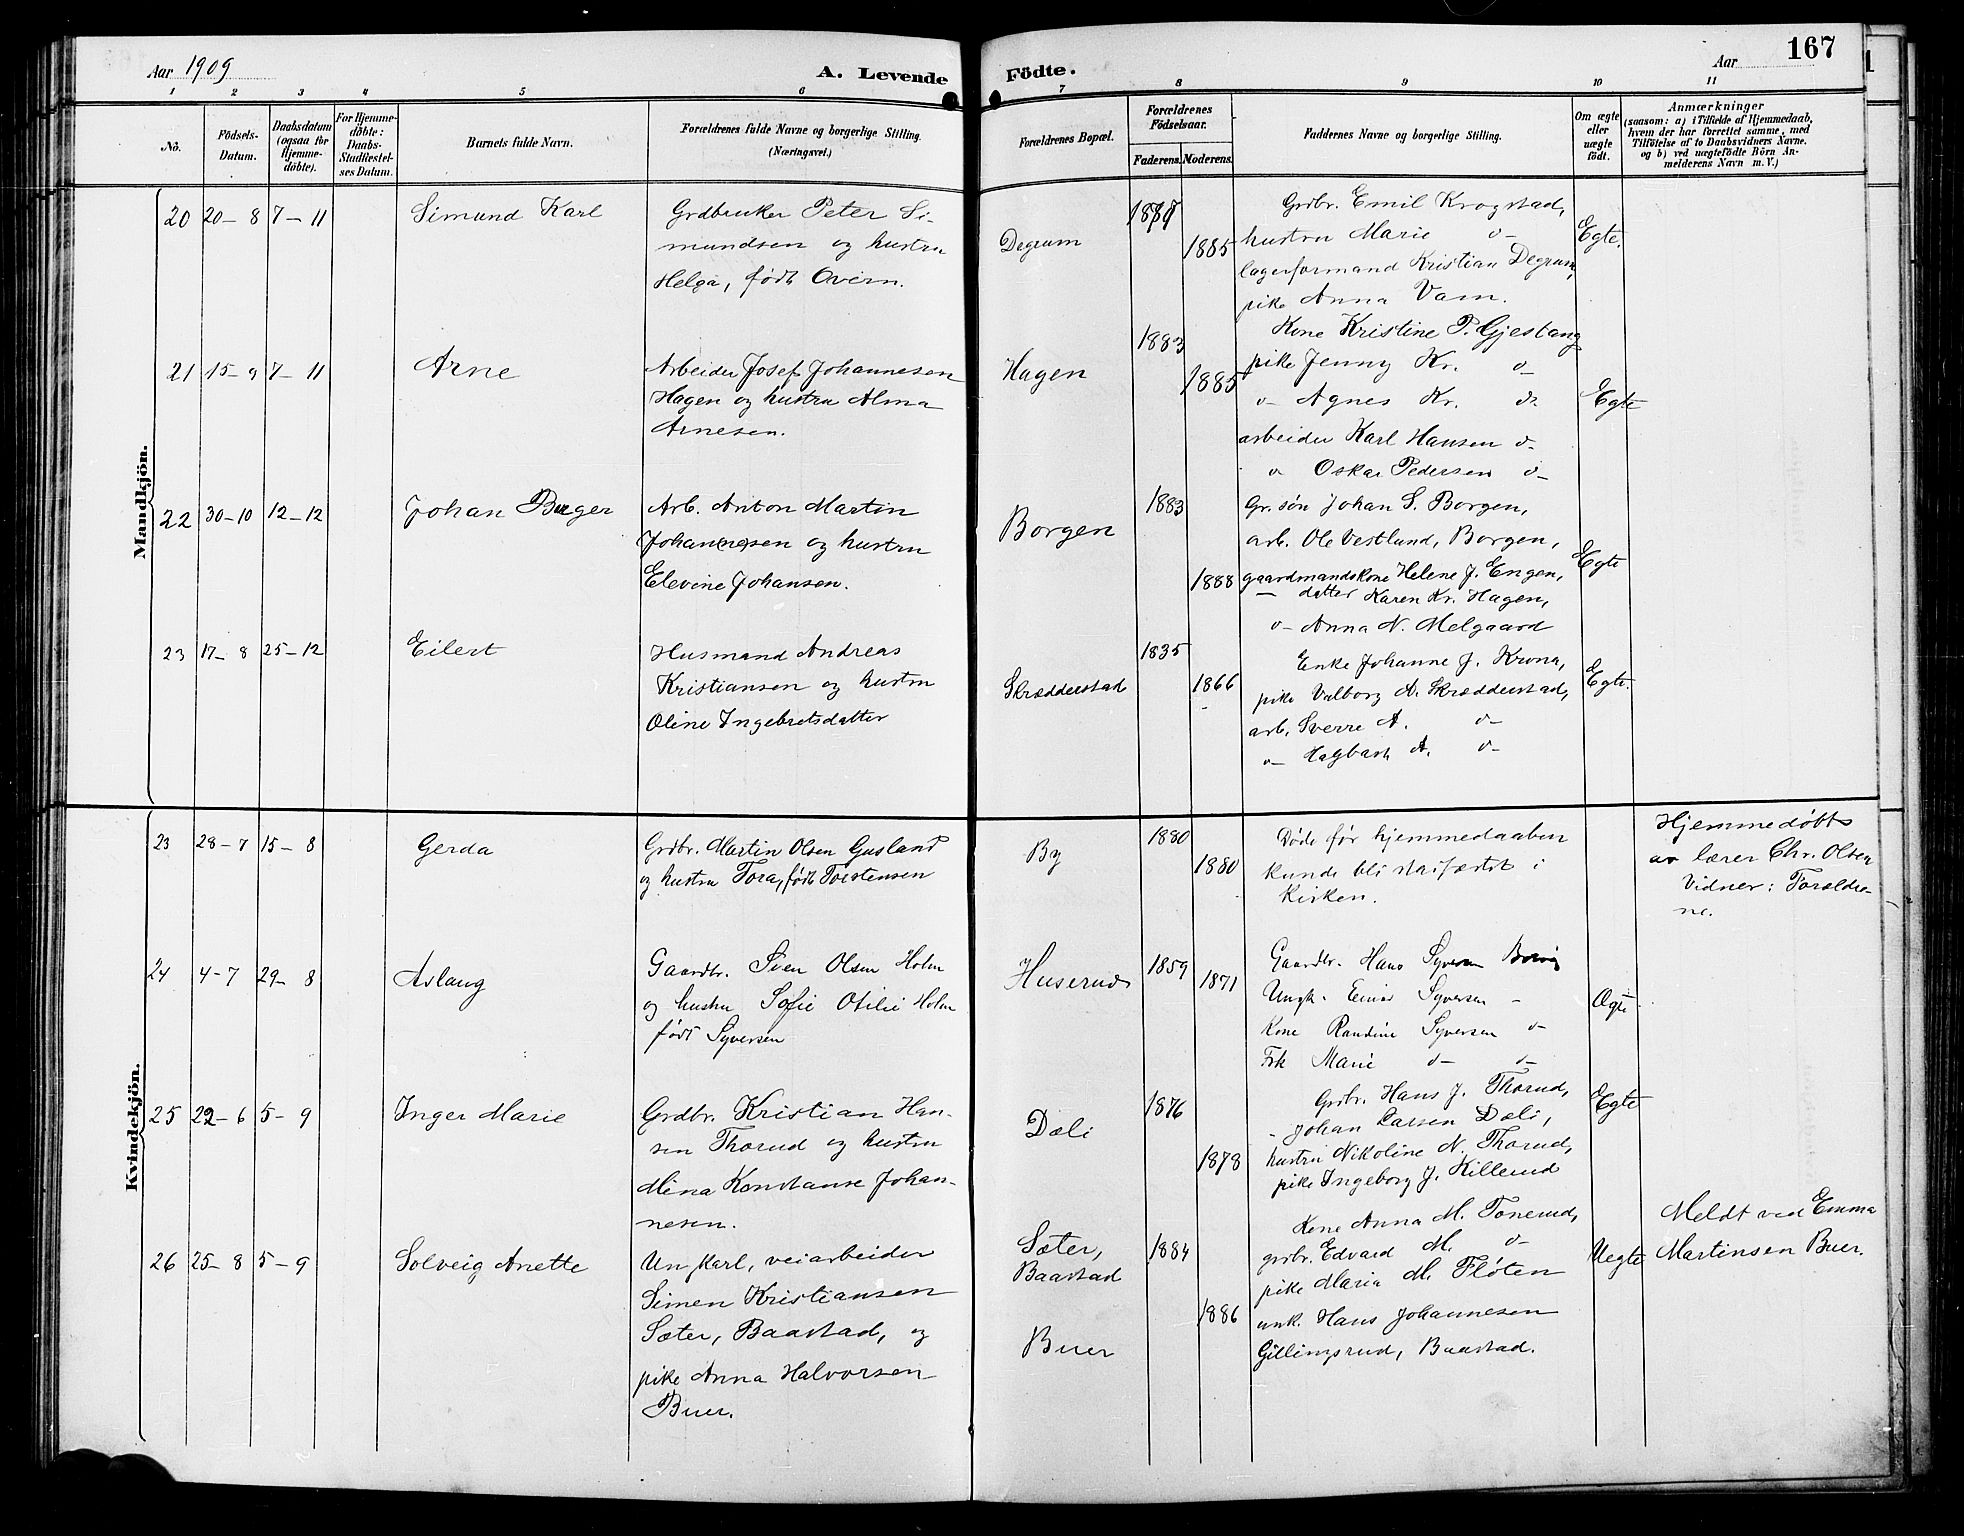 167
Aar 1909
A. Levende
Födte.
Aar
1 2 3 4 5 6 7 8 9 10 11
No.
Födsels-
Datum.
Daabsdatum
(ogsaa for
Hjemme-
døbte).
For Hjemme-
døbte:
Daabs-
Stadfæstel-
ses Datum.
Barnets fulde Navn.
Forældrenes fulde Navne og borgerlige Stilling.
(Næringsvei.)
Forældrenes Bopæl.
Forældrenes
Födselsaar.
Faderens. Moderens.
Faddernes Navne og borgerlige Stilling.
Om ægte
eller
uægte
født.
Anmærkninger
(saasom: a) i Tilfælde af Hjemmedaab,
hvem der har forrettet samme, med
Tilföielse af to Daabsvidners Navne.
og b) ved uægtefödte Börn An-
melderens Navn m. V.)
Mandkjön.
20 20-8 7-11 Simund Karl
Grdbruker Peter Si-
mundsen og hustru
Helga, født Overn.
Degrum
1885
Grdbr. Emil Krogstad,
hustru Marie o-
lagerformand Kristian Degrum,
pike Anna Vam.
Egte.
21 15-9 7-11 Arne
Arbeider Josef Johannesen
Hagen og hustru Alma
Arnesen.
Hagen
1883
1885
Kone Kristine P. Gjestang
pike Jenny Kr. o-
o- Agnes Kr. o-
arbeider Karl Hansen o-
o Oskar Pedersen o-
Egte
22 30-10 12-12 Johan Birger
Arb. Anton Martin
Johan(ne)sen og hustru
Elevine Johansen.
Borgen
1883
1888
Gr. søn Johan S. Borgen,
arb. Ole Vestlund, Borgen,
gaardmandskone Helene J. Engen,
— datter Karen Kr. Hagen,
o- Anna N. Melgaard
Egte
23 17-8 25-12 Eilert
Husmand Andreas
Kristiansen og hustru
Oline Ingebretsdatter
Skrædderstad
1835
1866
Enke Johanne J. Krona,
pike Valborg A. Skrædderstad,
arb. Sverre A. o-
o- Hagbart A. o-
Egte.
Kvindekjön.
23 28-7 15-8 Gerda
Grdbr. Martin Olsen Gusland
og hustru Tora, født Torstensen
By
1880
1880
Døde før hjemmedaaben
kunde bli stadfæstet i
Kirken.
Hjemmedøbt
av lærer Chr. Olsen
Vidner: Forældre-
ne.
24 4-7 29-8 Aslaug
Gaardbr. Sven Olsen Holm
og hustru Sofie Otilie Holm
født Syversen
Huserud
1859
1871
Gaardbr. Hans Syversen
Ungk. Einar Syversen -
Kone Randine Syversen o-
Frk Marie o- o-
Ægte
25 22-6 5-9 Inger Marie
Grdbr. Kristian Han-
sen Thorud og hustru
Mina Konstanse Johan-
nesen.
Dæli
1876
1878
Grdbr. Hans J. Thorud,
- Johan Larsen Dæli,
hustru Nikoline N. Thorud,
pike Ingeborg J. Killerud
Egte
26 25-8 5-9 Solveig Anette
Ungkarl, veiarbeider
Simen Kristiansen
Sæter, Baastad, og
pike Anna Halvorsen
Buer.
Sæter,
Baastad
Buer
1884
1886
Kone Anna M. Tonerud,
grdbr. Edvard M. o-
pike Maria M. Fløten
unk. Hans Johannesen
Gillingsrud, Baastad.
Uegte
Meldt ved Emma
Martinsen Buer.